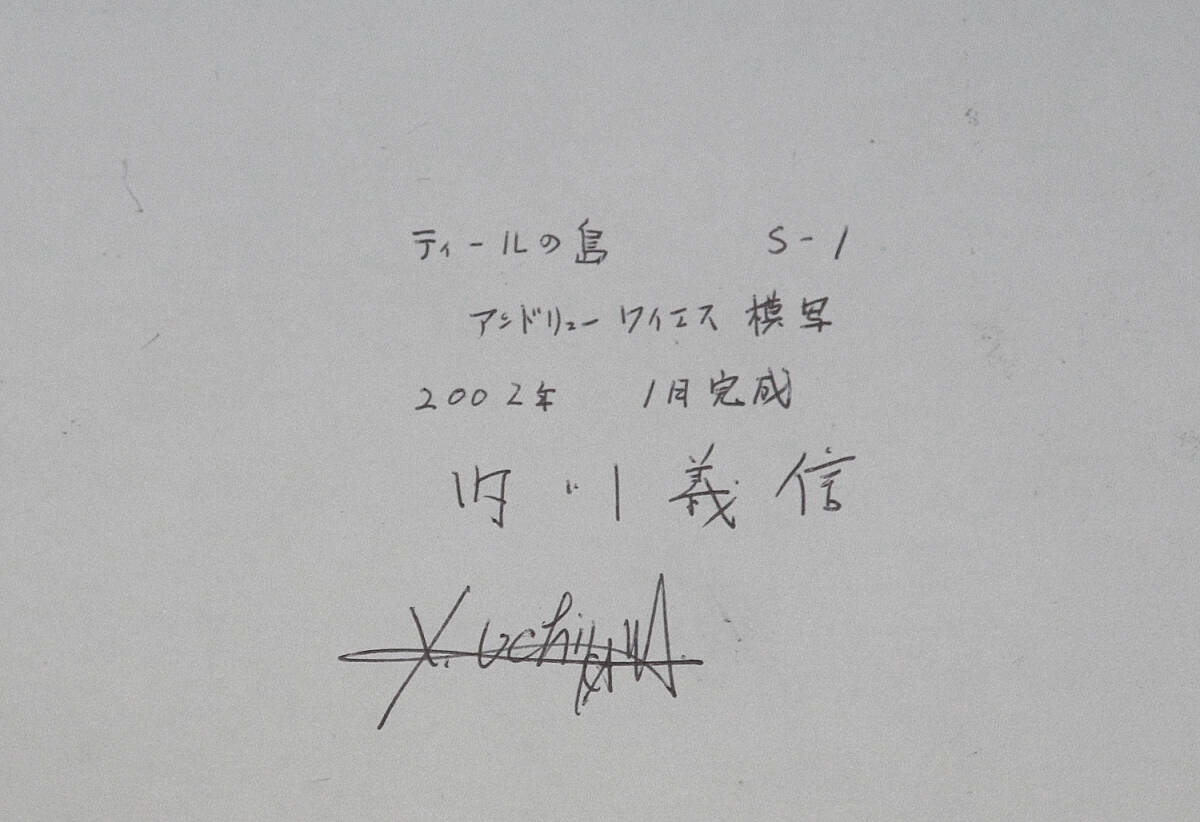 ティールの島 S-1
アンドリューワイエス 模写
2002年 1月完成
内川義信
Y. Uchikawa